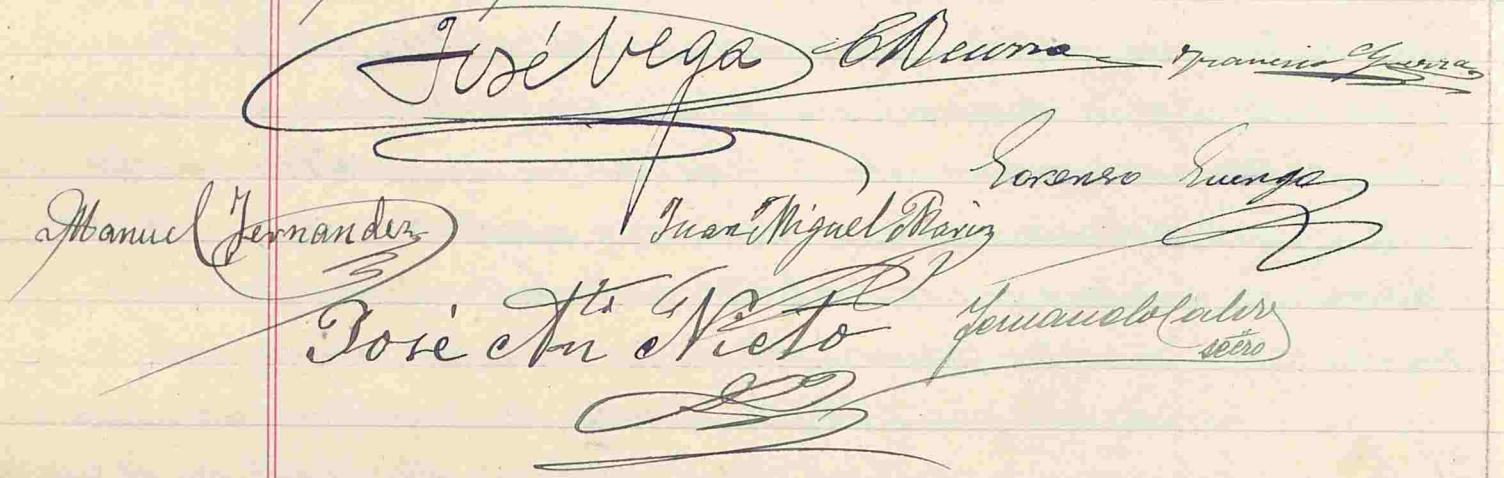 José Vega Francisco Guerra
Lorenzo Luengo
Manuel Fernandez Juan Miguel
José Anto Nieto Fernando Calvo
secro